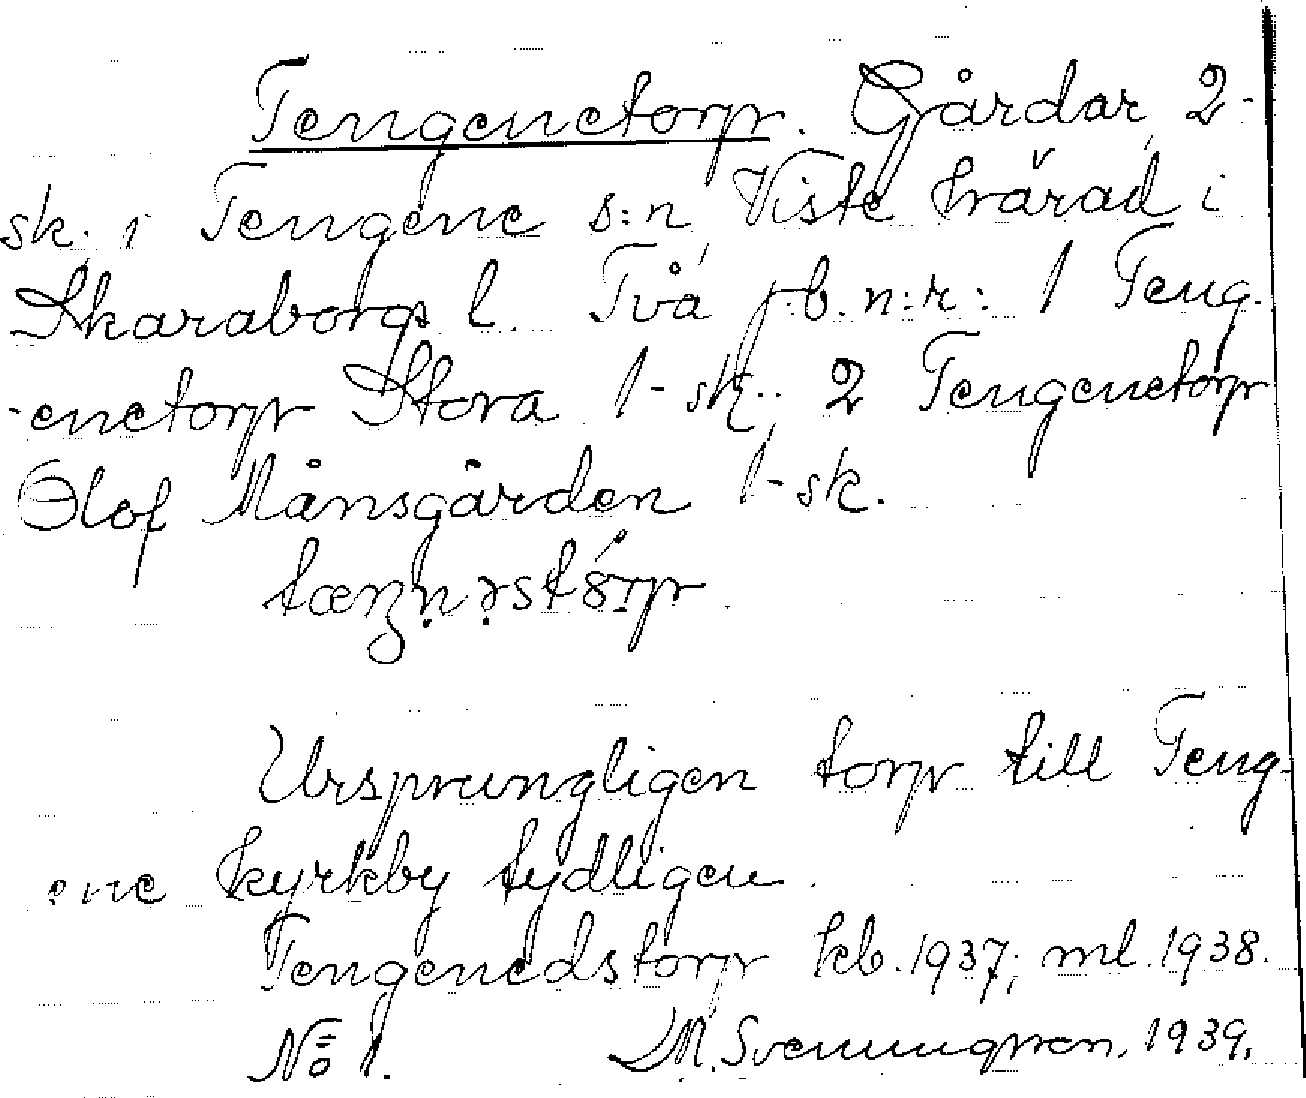 Tengenetorp. Gårdar, 2-
sk. i Tengene s:n, Viste härad i
Skaraborgs l. Två j.b.n:r: 1 Teng-
-enetorp Stora 1-sk.. 2 Tengenetorp
Olof Månsgården 1-sk.
Ursprungligen torp till Teng-
ene kyrkby tydligen.
Tengenedstorp kb. 1937; ml. 1938.
No 1. M. Svenungsson. 1939.